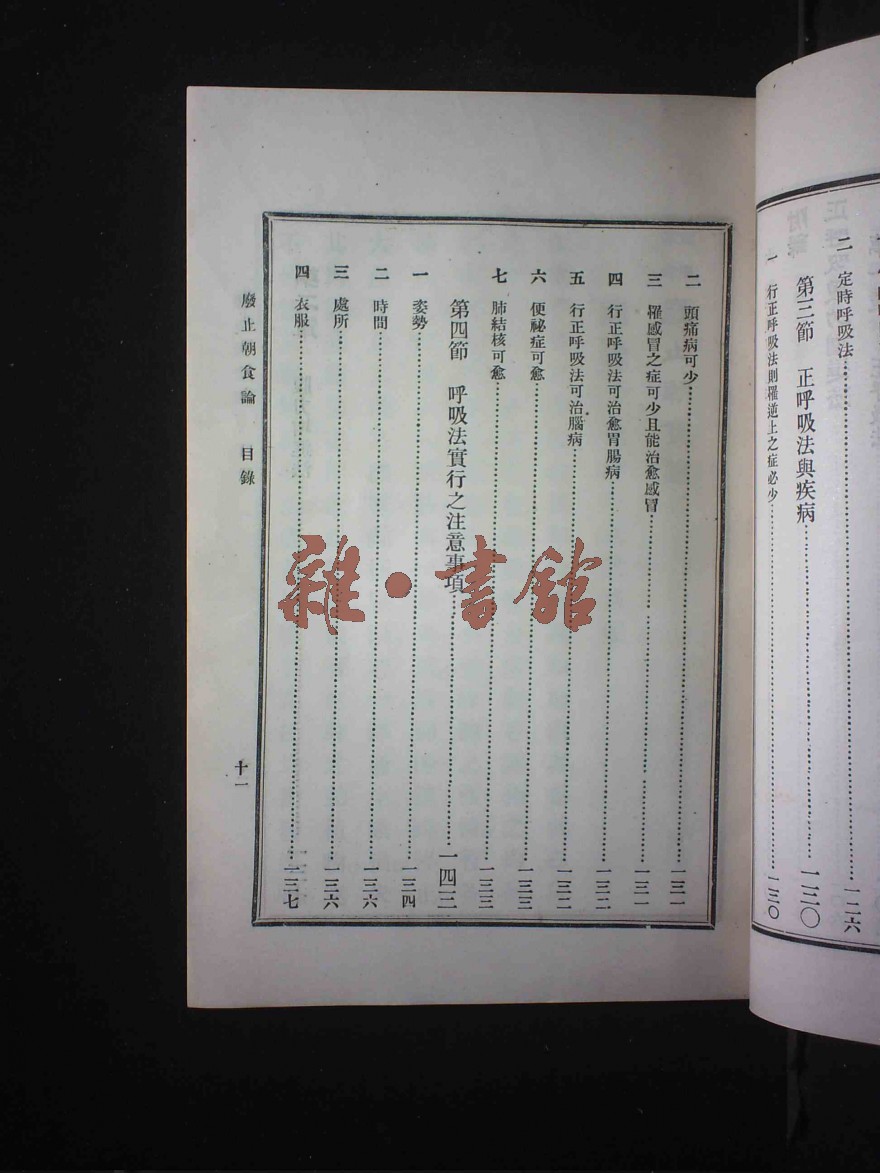 二 定時呼吸法……一二六
第三節 正呼吸法與疾病……一三〇
一 行正呼吸法則罹逆上之症必少……一三〇
二 頭痛病可少……一三一
三 罹感冒之症可少且能治愈感冒……一三一
四 行正呼吸法可治愈胃腸病……一三二
五 行正呼吸法可治腦病……一三二
六 便祕症可愈……一三三
七 肺結核可愈……一三三
第四節 呼吸法實行之注意事項……一四三
一 姿勢……一三四
二 時間……一三六
三 處所……一三六
四 衣服……一三七
廢止朝食論 目錄
十一
雜·書館